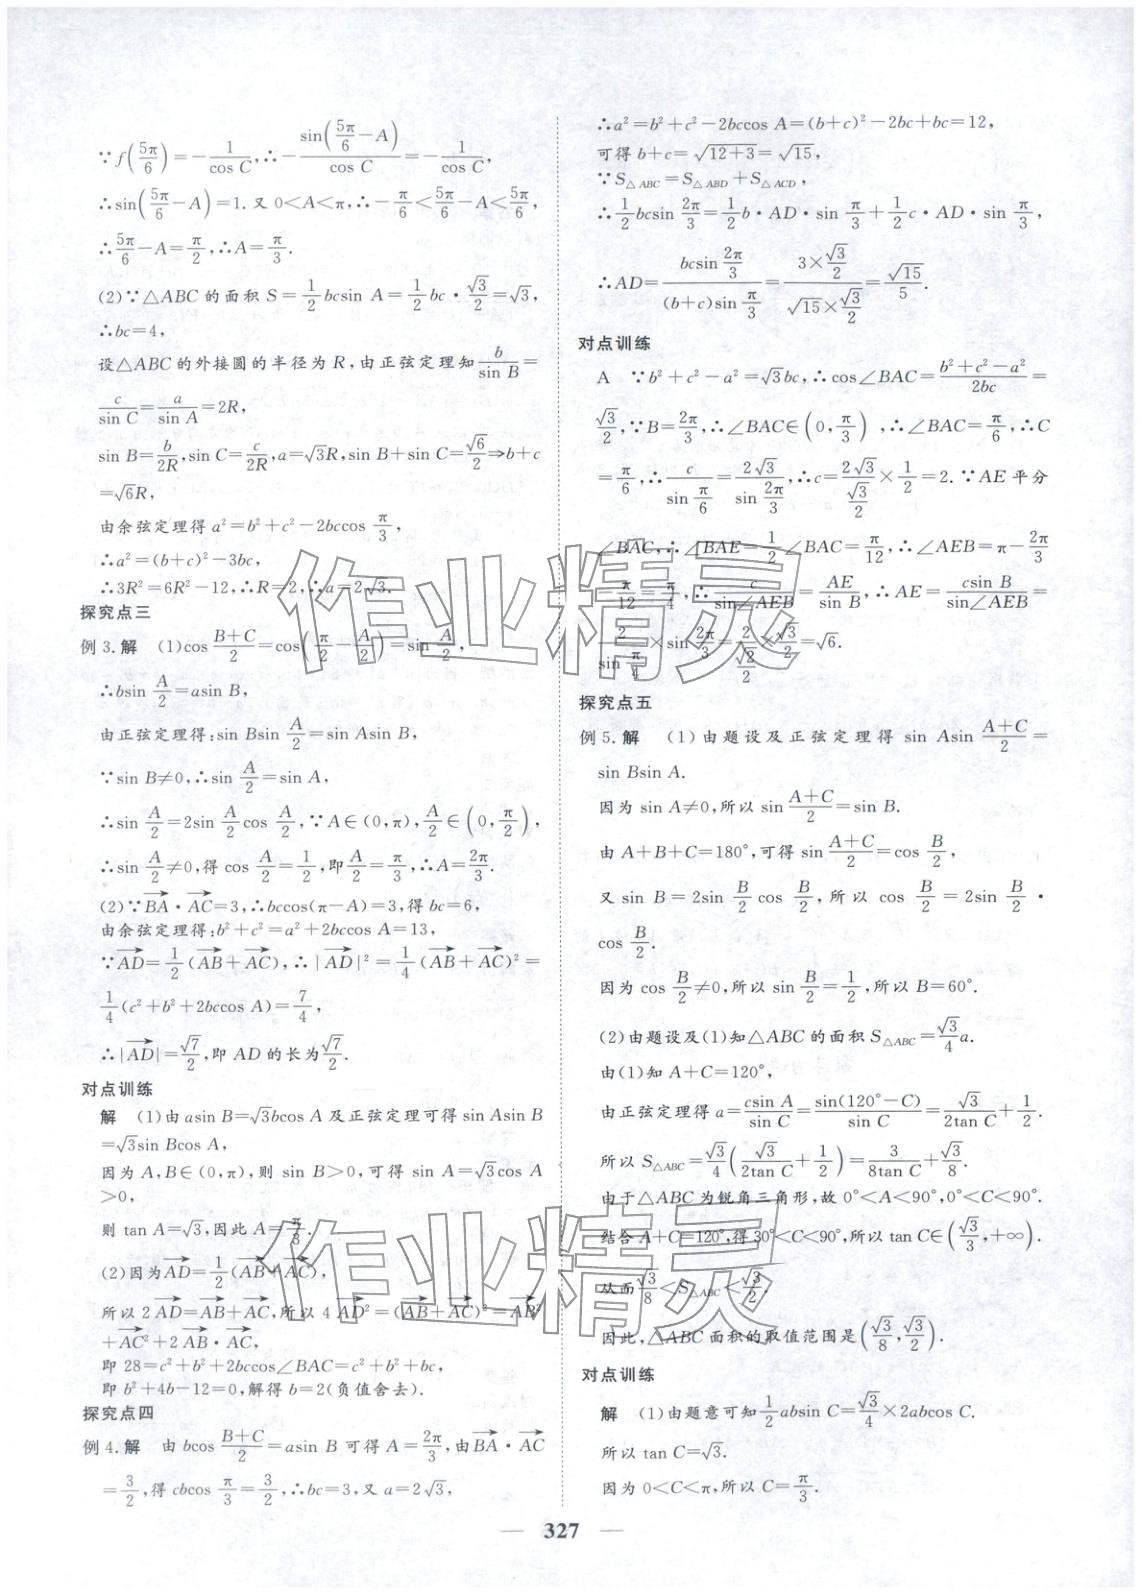 ∵f(5π/6)=−1/cos C,∴−sin(5π/6−A)/cos C=−1/cos C,
∴sin(5π/6−A)=1.又0<A<π,∴−π/6<5π/6−A<5π/6,
∴5π/6−A=π/2,∴A=π/3.
(2)∵△ABC的面积S=1/2bcsin A=1/2bc·√3/2=√3,
∴bc=4,
设△ABC的外接圆的半径为R,由正弦定理知b/sin B=
c/sin C=a/sin A=2R,
sin B=b/2R,sin C=c/2R,a=√3R,sin B+sin C=√6/2⇒b+c
=√6R,
由余弦定理得a²=b²+c²−2bccos π/3,
∴a²=(b+c)²−3bc,
∴3R²=6R²−12,∴R=2,∴a=2√3.
探究点三
例3.解 (1)cos (B+C)/2=cos(π/2−A/2)=sin A/2,
∴bsin A/2=asin B,
由正弦定理得:sin Bsin A/2=sin Asin B,
∵sin B≠0,∴sin A/2=sin A,
∴sin A/2=2sin A/2 cos A/2,∵A∈(0,π),A/2∈(0,π/2),
∴sin A/2≠0,得cos A/2=1/2,即A/2=π/3,∴A=2π/3.
(2)∵BA→·AC→=3,∴bccos(π−A)=3,得bc=6,
由余弦定理得:b²+c²=a²+2bccos A=13,
∵AD→=1/2(AB→+AC→),∴|AD→|²=1/4(AB→+AC→)²=
1/4(c²+b²+2bccos A)=7/4,
∴|AD→|=√7/2,即AD的长为√7/2.
对点训练
解 (1)由asin B=√3bcos A及正弦定理可得sin Asin B
=√3sin Bcos A,
因为A,B∈(0,π),则sin B>0,可得sin A=√3cos A
>0,
则tan A=√3,因此A=π/3.
(2)因为AD→=1/2(AB→+AC→),
所以2AD→=AB→+AC→,所以4AD→²=(AB→+AC→)²=AB→²
+AC→²+2AB→·AC→,
即28=c²+b²+2bccos∠BAC=c²+b²+bc,
即b²+4b−12=0,解得b=2(负值舍去).
探究点四
例4.解 由bcos (B+C)/2=asin B可得A=2π/3,由BA→·AC→
=3/2,得cbcos π/3=3/2,∴bc=3,又a=2√3,
∴a²=b²+c²−2bccos A=(b+c)²−2bc+bc=12,
可得b+c=√(12+3)=√15,
∵S△ABC=S△ABD+S△ACD,
∴1/2bcsin 2π/3=1/2b·AD·sin π/3+1/2c·AD·sin π/3,
∴AD=bcsin 2π/3/((b+c)sin π/3)=(3×√3/2)/(√15×√3/2)=√15/5.
对点训练
A ∵b²+c²−a²=√3bc,∴cos∠BAC=(b²+c²−a²)/2bc=
√3/2,∵B=2π/3,∴∠BAC∈(0,π/3),∴∠BAC=π/6,∴C
=π/6,∴c/sin π/6=2√3/sin 2π/3,∴c=2√3/(√3/2)×1/2=2.∵AE平分
∠BAC,∴∠BAE=1/2∠BAC=π/12,∴∠AEB=π−2π/3
−π/12=π/4,∴c/sin∠AEB=AE/sin B,∴AE=csin B/sin∠AEB=
2/sin π/4×sin 2π/3=2/(√2/2)×√3/2=√6.
探究点五
例5.解 (1)由题设及正弦定理得sin Asin (A+C)/2=
sin Bsin A.
因为sin A≠0,所以sin (A+C)/2=sin B.
由A+B+C=180°,可得sin (A+C)/2=cos B/2,
又sin B=2sin B/2 cos B/2,所以cos B/2=2sin B/2·
cos B/2.
因为cos B/2≠0,所以sin B/2=1/2,所以B=60°.
(2)由题设及(1)知△ABC的面积S△ABC=√3/4a.
由(1)知A+C=120°,
由正弦定理得a=csin A/sin C=sin(120°−C)/sin C=√3/2tan C+1/2.
所以S△ABC=√3/4(√3/2tan C+1/2)=3/8tan C+√3/8.
由于△ABC为锐角三角形,故0°<A<90°,0°<C<90°.
结合A+C=120°,得30°<C<90°,所以tan C∈(√3/3,+∞).
从而√3/8<S△ABC<√3/2.
因此,△ABC面积的取值范围是(√3/8,√3/2).
对点训练
解 (1)由题意可知1/2absin C=√3/4×2abcos C.
所以tan C=√3.
因为0<C<π,所以C=π/3.
— 327 —
作业精灵
作业精灵